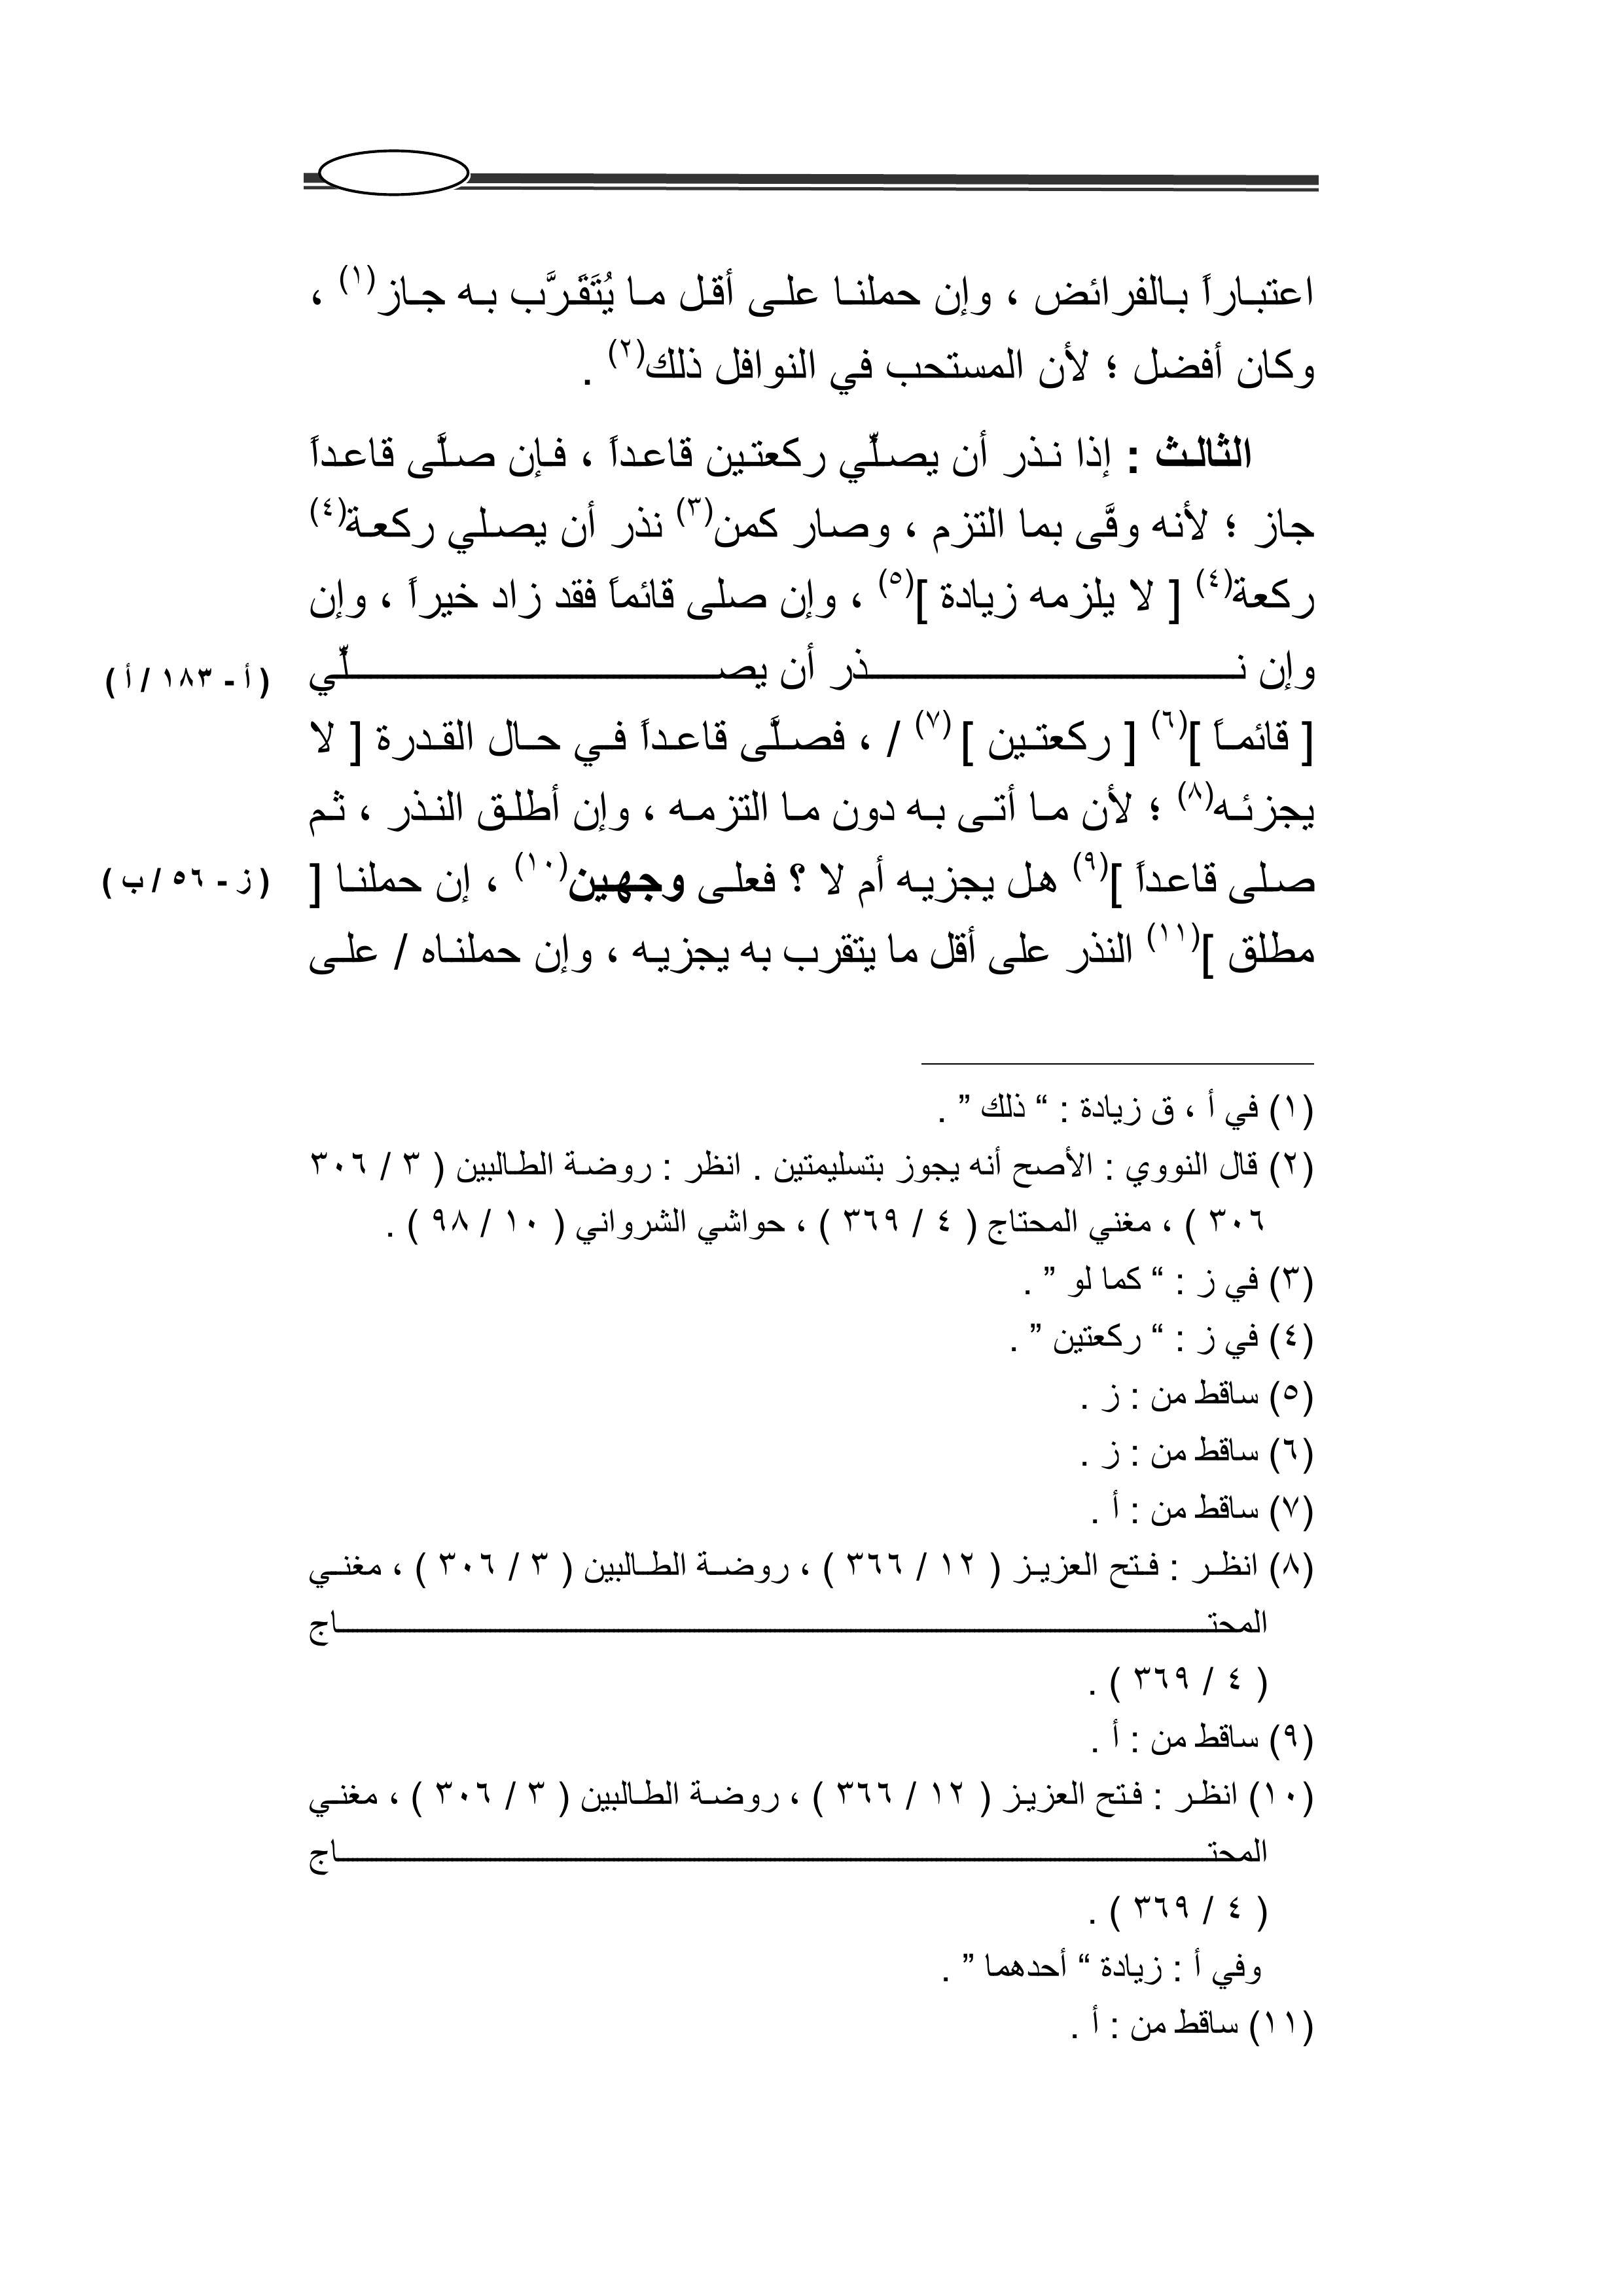 اعتباراً بالفرائض ، وإن حملنا على أقل ما يُتَقَرَّب به جاز(١) ،
وكان أفضل ؛ لأن المستحب في النوافل ذلك(٢) .
الثالث : إذا نذر أن يصلِّي ركعتين قاعداً ، فإن صلَّى قاعداً
جاز ؛ لأنه وفَّى بما التزم ، وصار كمن(٣) نذر أن يصلي ركعة(٤)
ركعة(٤) [ لا يلزمه زيادة ](٥) ، وإن صلى قائماً فقد زاد خيراً ، وإن
وإن نذر أن يصلِّي
( أ - ١٨٣ / أ )
[ قائماً ](٦) [ ركعتين ] (٧) / ، فصلَّى قاعداً في حال القدرة [ لا
يجزئه(٨) ؛ لأن ما أتى به دون ما التزمه ، وإن أطلق النذر ، ثم
صلى قاعداً ](٩) هل يجزيه أم لا ؟ فعلى وجهين(١٠) ، إن حملنا [
( ز - ٥٦ / ب )
مطلق ](١١) النذر على أقل ما يتقرب به يجزيه ، وإن حملناه / على
(١) في أ ، ق زيادة : “ ذلك ” .
(٢) قال النووي : الأصح أنه يجوز بتسليمتين . انظر : روضة الطالبين ( ٣ / ٣٠٦
٣٠٦ ) ، مغني المحتاج ( ٤ / ٣٦٩ ) ، حواشي الشرواني ( ١٠ / ٩٨ ) .
(٣) في ز : “ كما لو ” .
(٤) في ز : “ ركعتين ” .
(٥) ساقط من : ز .
(٦) ساقط من : ز .
(٧) ساقط من : أ .
(٨) انظر : فتح العزيز ( ١٢ / ٣٦٦ ) ، روضة الطالبين ( ٣ / ٣٠٦ ) ، مغني
المحتاج
( ٤ / ٣٦٩ ) .
(٩) ساقط من : أ .
(١٠) انظر : فتح العزيز ( ١٢ / ٣٦٦ ) ، روضة الطالبين ( ٣ / ٣٠٦ ) ، مغني
المحتاج
( ٤ / ٣٦٩ ) .
وفي أ : زيادة “ أحدهما ” .
(١١) ساقط من : أ .